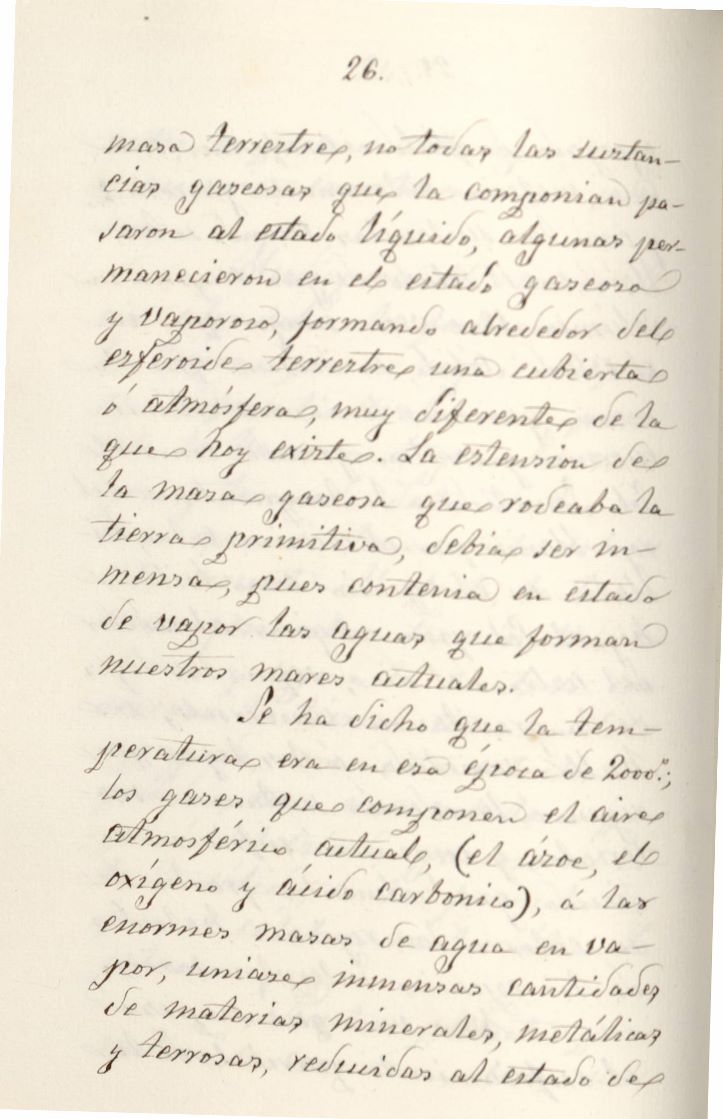 26.
masa terrestre, no todas las sustan-
cias gaseosas que la componian pa-
saron al estado líquido, algunas per-
manecieron en el estado gaseoso
y vaporoso, formando alrededor del
esferoide terrestre una cubierta
ó atmósfera, muy diferente de la
que hoy existe. La estension de
la masa gaseosa que rodeaba la
tierra primitiva, debia ser in-
mensa, pues contenia en estado
de vapor las aguas que forman
nuestros mares actuales.
Se ha dicho que la tem-
peratura era en esa época de 2000°.;
los gases que componen el aire
atmosférico actual, (el ázoe, el
oxígeno y ácido carbonico), á las
enormes masas de agua en va-
por, uniase inmensas cantidades
de materias minerales, metálicas
y terrosas, reducidas al estado de